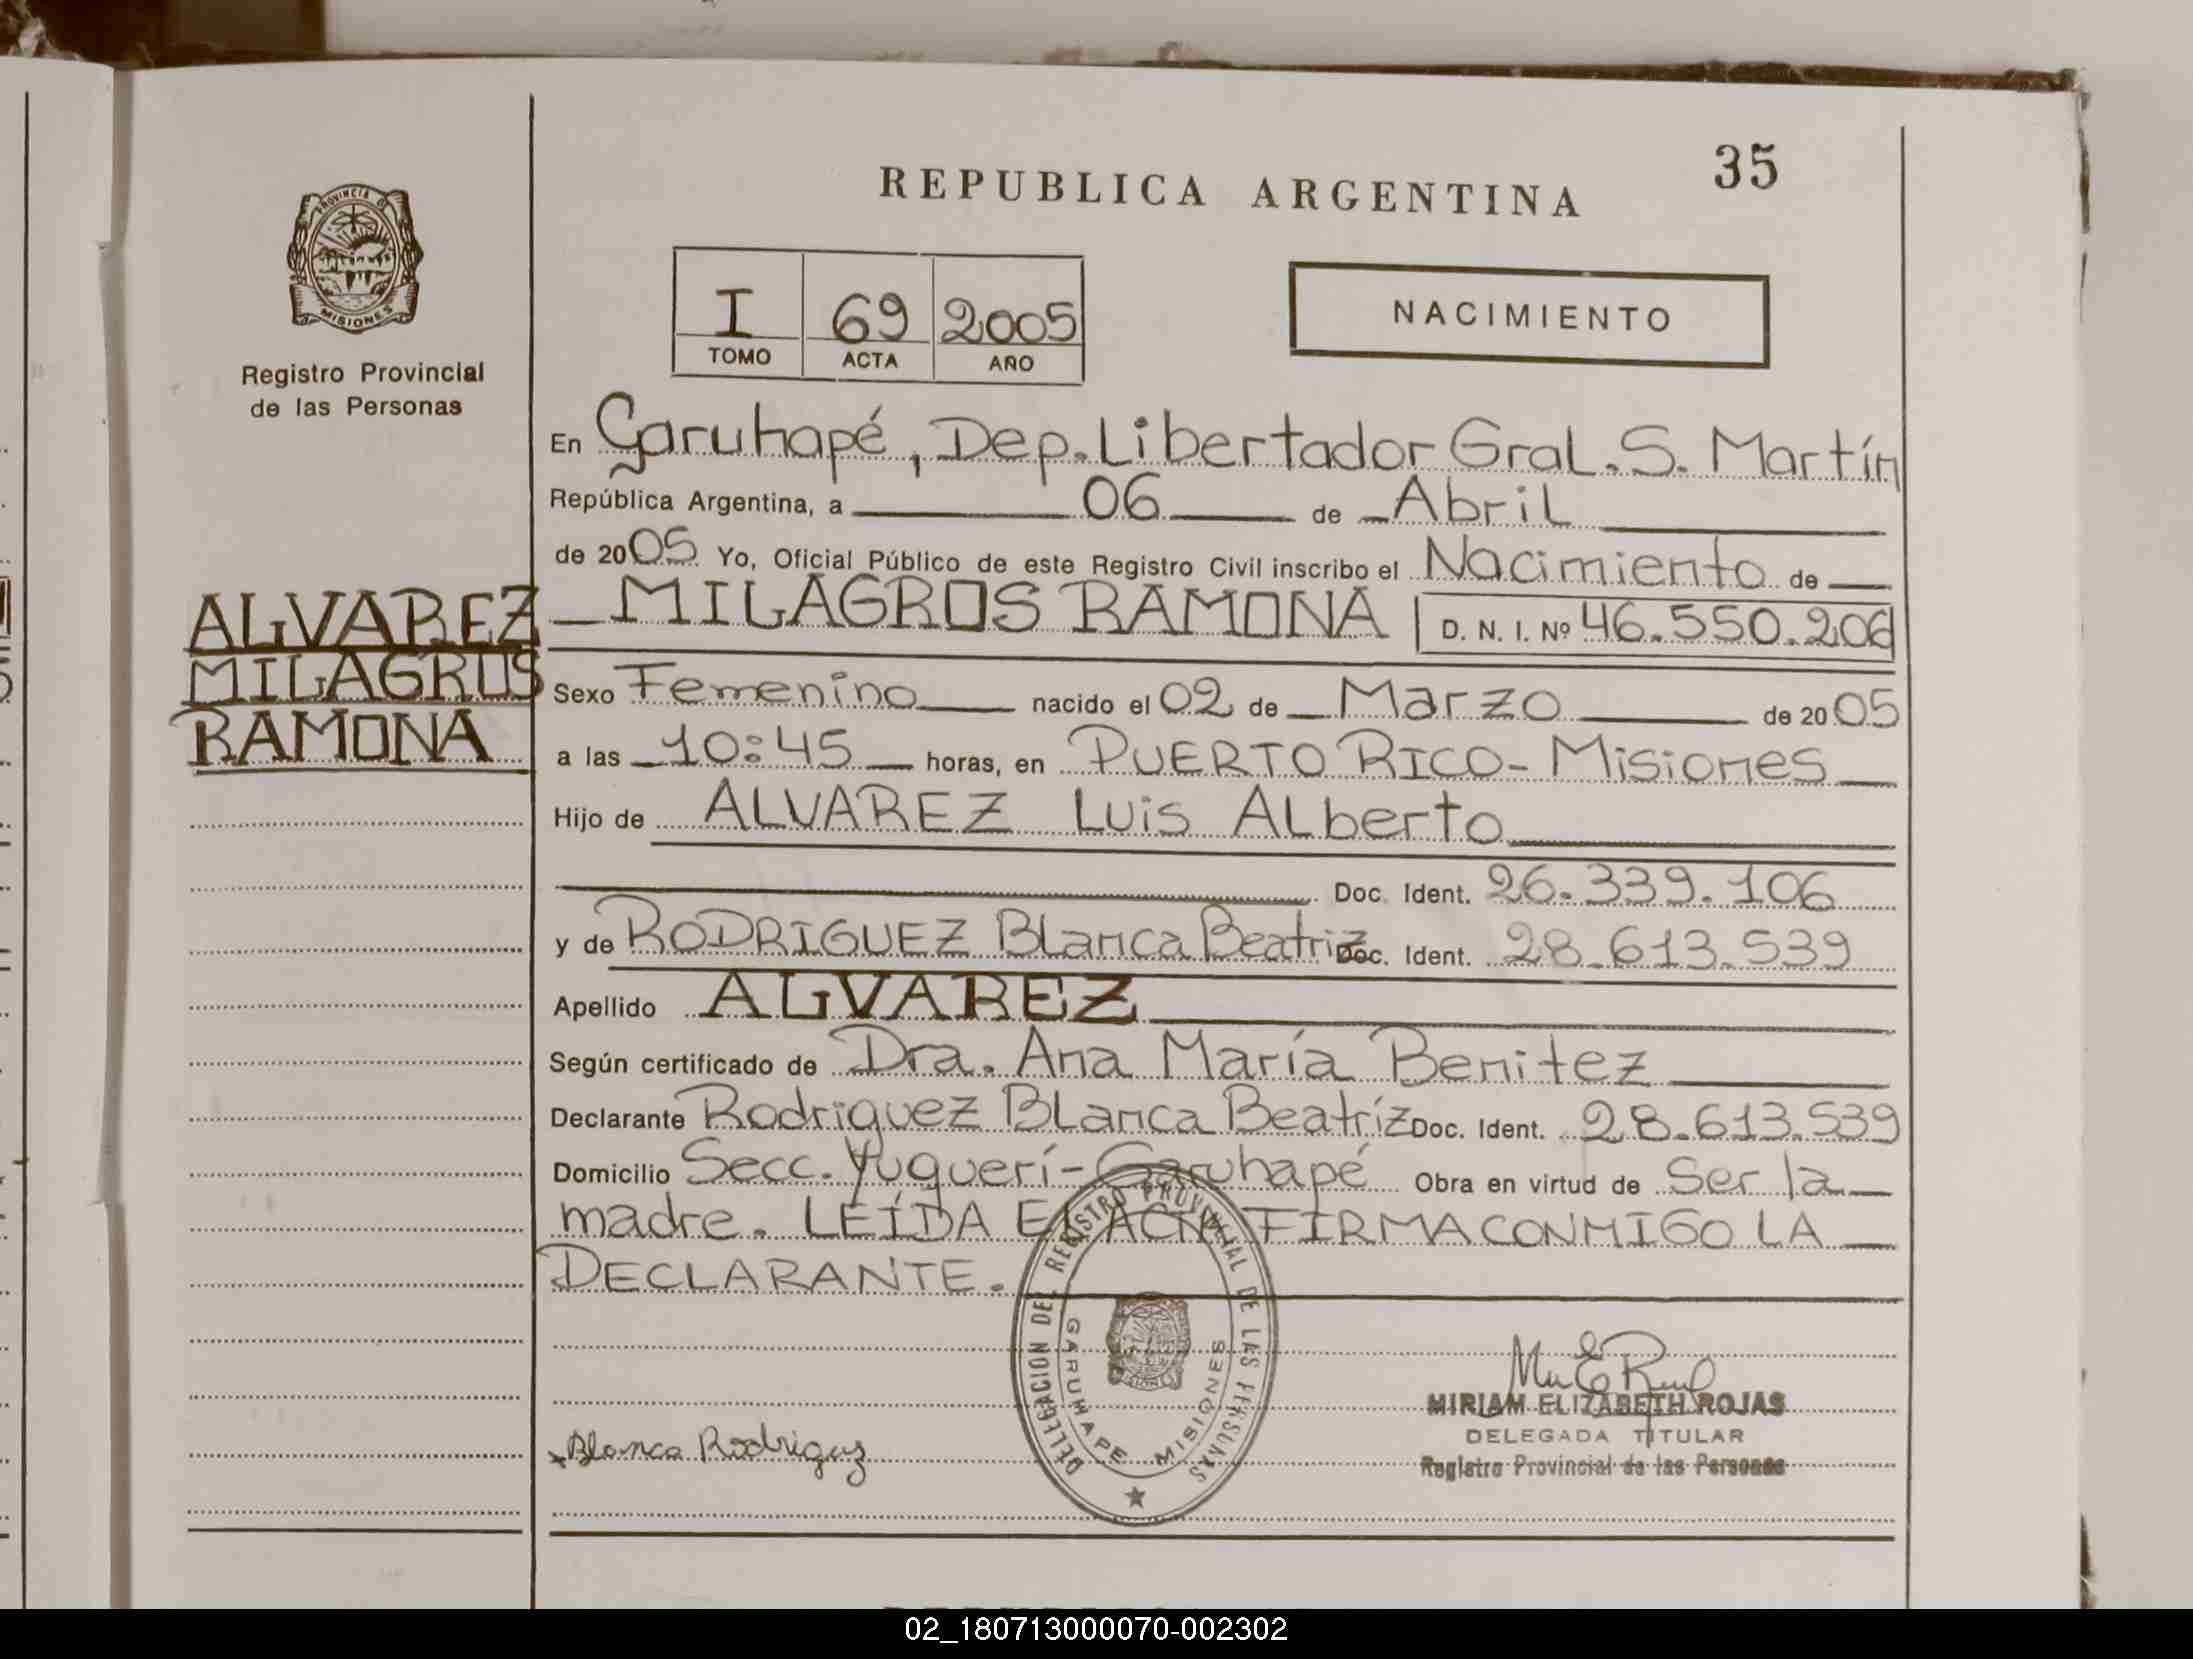 35
REPUBLICA ARGENTINA
PROVINCIA D
MISIONES
Registro Provincial
de las Personas
I 69 2005
TOMO ACTA AÑO
NACIMIENTO
En Garuhapé, Dep. Libertador Gral. S. Martín
República Argentina, a 06 de Abril
de 2005 Yo, Oficial Público de este Registro Civil inscribo el Nacimiento de
ALVAREZ
MILAGROS
RAMONA
MILAGROS RAMONA D. N. I. Nº 46.550.206
Sexo Femenino nacido el 02 de Marzo de 2005
a las 10:45 horas, en PUERTO RICO - Misiones
Hijo de ALVAREZ Luis Alberto
Doc. Ident. 26.339.106
y de RODRIGUEZ Blanca Beatriz Doc. Ident. 28.613.539
Apellido ALVAREZ
Según certificado de Dra. Ana María Benitez
Declarante Rodriguez Blanca Beatríz Doc. Ident. 28.613.539
Domicilio Secc. Yuquerí - Garuhapé Obra en virtud de Ser la
madre. LEÍDA EL ACTA FIRMA CONMIGO LA
DECLARANTE.
DELEGACION DEL REGISTRO PROVINCIAL DE LAS PERSONAS
GARUHAPE MISIONES
MISIONES
Blanca Rodriguez
MIRIAM ELIZABETH ROJAS
DELEGADA TITULAR
Registro Provincial de las Personas
02_180713000070-002302